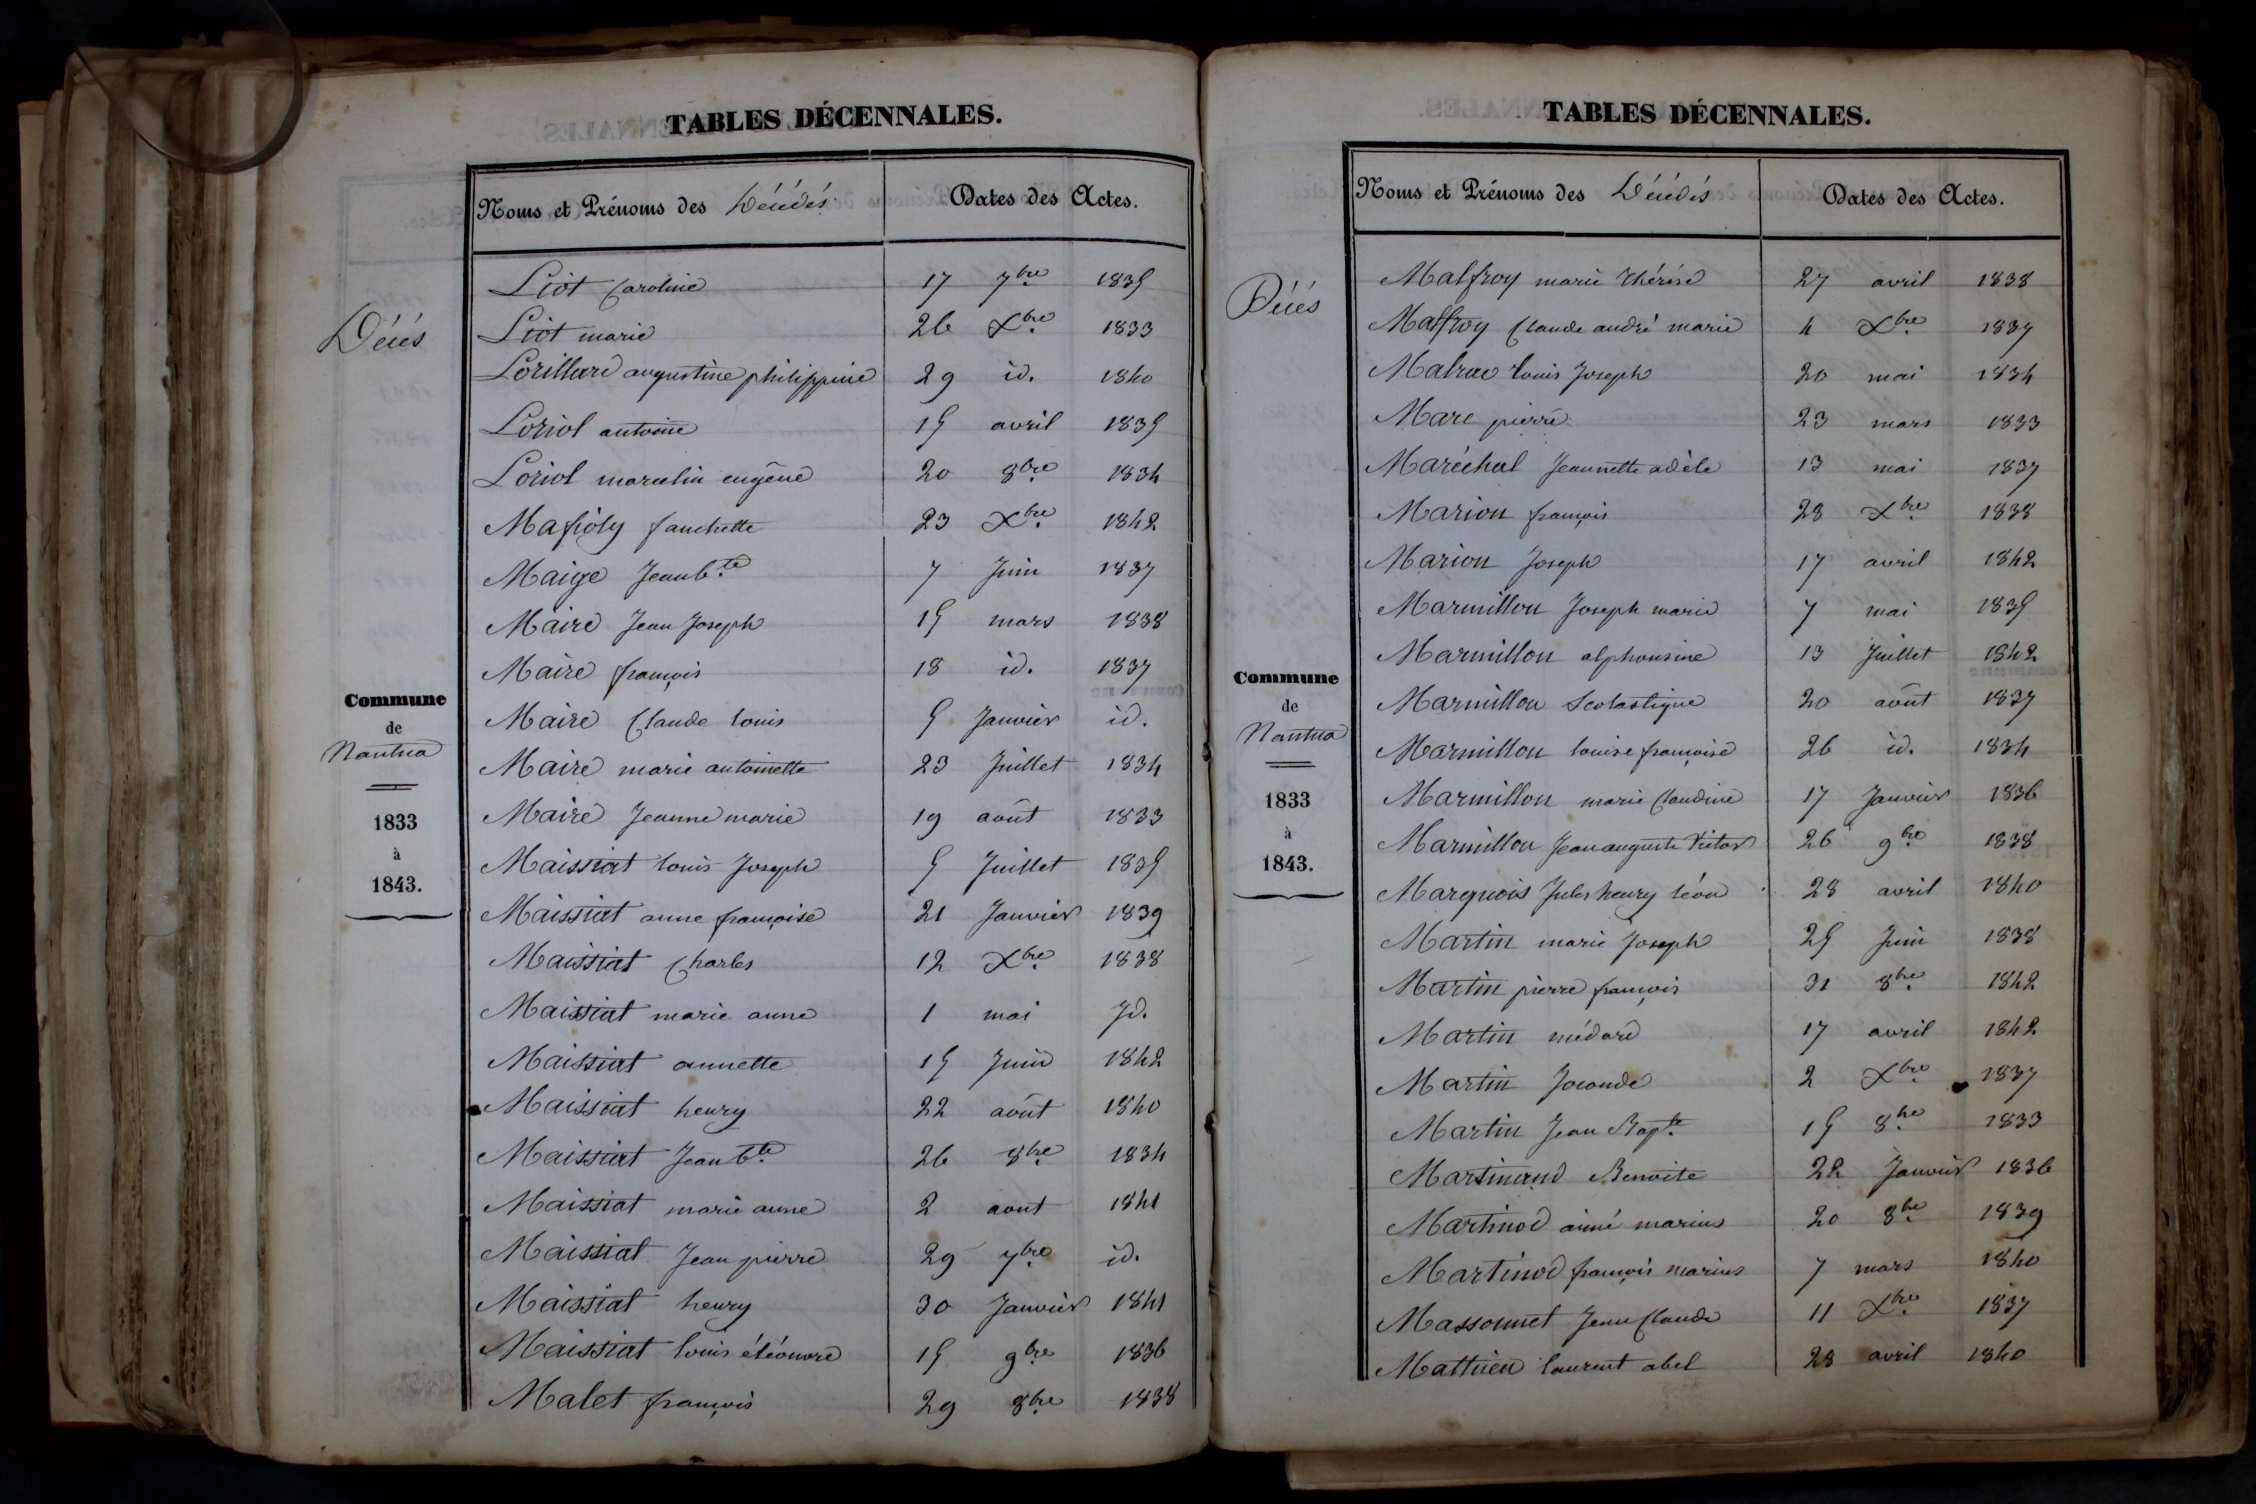 TABLES DÉCENNALES.
Noms et Prénoms des Décédés Dates des Actes.
Décés
Commune
de
Nantua
1833
à
1843.
Liot Caroline 17 7bre 1835
Liot marie 26 Xbre 1833
Lorillard augustine philippine 29 id. 1840
Loriol antoine 15 avril 1835
Loriol marcelin eugêne 20 8bre 1834
Mafioly fanchette 23 Xbre 1842
Maige Jean bte 7 Juin 1837
Maire Jean Joseph 15 mars 1838
Maire françois 18 id. 1837
Maire Claude louis 5 Janvier id.
Maire marie antoinette 23 Juillet 1834
Maire Jeanne marie 19 août 1833
Maissiat louis Joseph 5 Juillet 1835
Maissiat anne françoise 21 Janvier 1839
Maissiat Charles 12 Xbre 1838
Maissiat marie anne 1 mai Id.
Maissiat annette 15 Juin 1842
Maissiat henry 22 août 1840
Maissiat Jean bte 26 8bre 1834
Maissiat marie anne 2 aout 1841
Maissiat Jean pierre 29 7bre id.
Maissiat henry 30 Janvier 1841
Maissiat louis éléonore 15 9bre 1836
Malet françois 29 8bre 1838
TABLES DÉCENNALES.
Noms et Prénoms des Décédés Dates des Actes.
Décés
Commune
de
Nantua
1833
à
1843.
Malfroy marie thérése 27 avril 1838
Malfroy Claude andré marie 4 Xbre 1837
Malrac louis Joseph 20 mai 1834
Marc pierre 23 mars 1833
Maréchal Jeannette adèle 13 mai 1837
Marion françois 28 Xbre 1838
Marion Joseph 17 avril 1842
Marmillon Joseph marie 7 mai 1835
Marmillon alphonsine 13 Juillet 1842
Marmillon Scolastique 20 août 1837
Marmillon louise françoise 26 id. 1834
Marmillon marie Claudine 17 Janvier 1836
Marmillon Jean auguste Victor 26 9bre 1838
Marquois Jules henry léon 28 avril 1840
Martin marie Joseph 25 Juin 1838
Martin pierre françois 31 8bre 1842
Martin médard 17 avril 1842
Martin Joconde 2 Xbre 1837
Martin Jean Bapte 15 8bre 1833
Martinand Benoite 22 Janvier 1836
Martinod aimé marius 20 8bre 1839
Martinod françois marius 7 mars 1840
Massonnet Jean Claude 11 Xbre 1837
Mathieu laurent abel 28 avril 1840